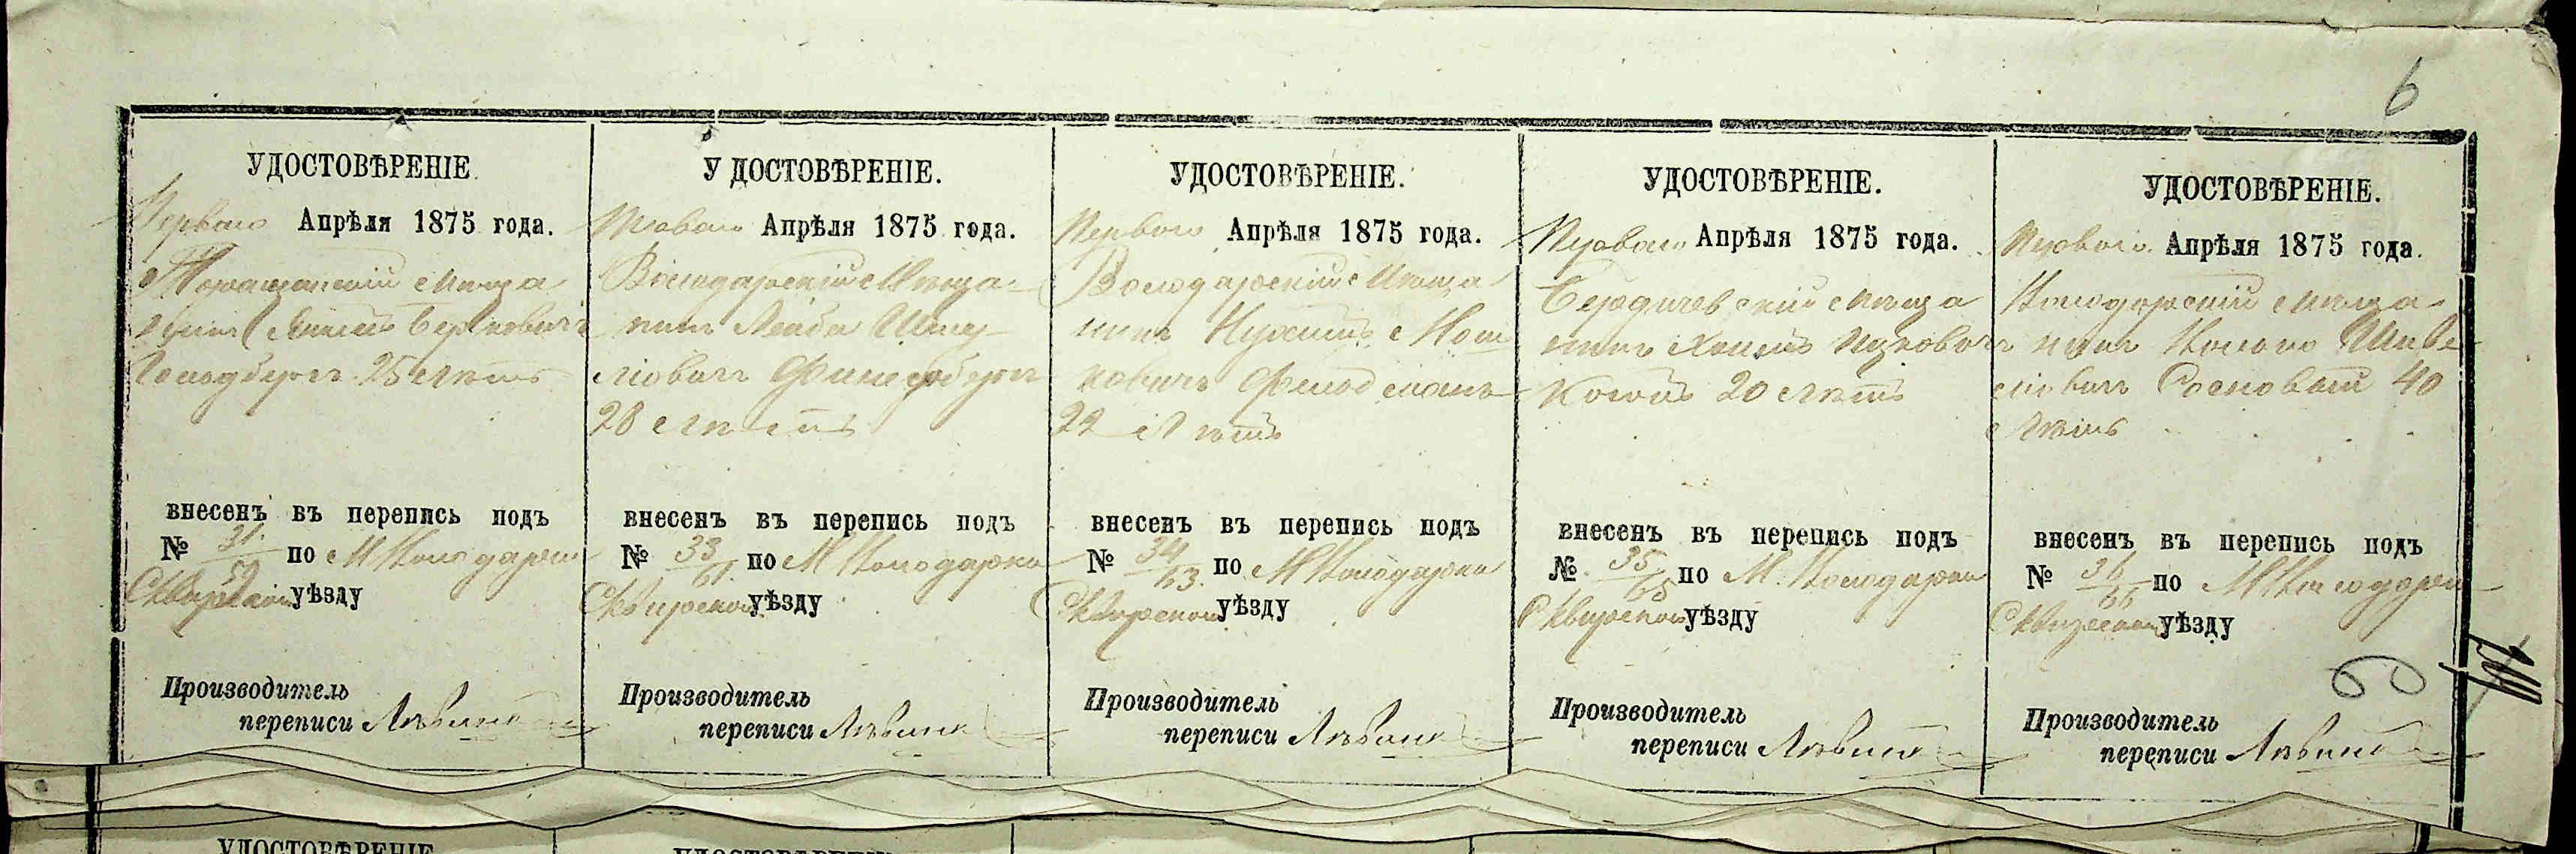 6
УДОСТОВѢРЕНІЕ.
Перваго Апрѣля 1875 года.
Таращанскій Мѣща
нинъ Берковичъ
Гольдбергъ 25 Лѣтъ
внесенъ въ перепись подъ
№ 31/59 по М Володарки
Сквирскому уѣзду
Производитель
переписи Лѣвинъ
У ДОСТОВѢРЕНІЕ.
Перваго Апрѣля 1875 года.
Володарскій Мѣща-
нинъ Лейба Шму-
левичъ
28 Лѣтъ
внесенъ въ перепись подъ
№ 33/61 по М Володарки
Сквирскому уѣзду
Производитель
переписи Лѣвинъ
УДОСТОВѢРЕНІЕ.
Перваго Апрѣля 1875 года.
Володарскій Мѣща
нинъ Нухимъ Мош
ковичъ Фельдманъ
22 Лѣтъ
внесенъ въ перепись подъ
№ 34/63 по М Володарки
Сквирскому уѣзду
Производитель
переписи Лѣвинъ
УДОСТОВѢРЕНІЕ.
Перваго Апрѣля 1875 года.
Бердичевскій Мѣща
нинъ Хаимъ Ицковичъ
20 Лѣтъ
внесенъ въ перепись подъ
№ 35/65 по М. Володарки
Сквирскому уѣзду
Производитель
переписи Лѣвинъ
УДОСТОВѢРЕНІЕ.
Перваго Апрѣля 1875 года.
Володарскій Мѣща-
нинъ
Сосновый 40
Лѣтъ
внесенъ въ перепись подъ
№ 36/66 по М Володарки
Сквирскому уѣзду
Производитель
переписи Лѣвинъ
УДОСТОВѢРЕНІЕ